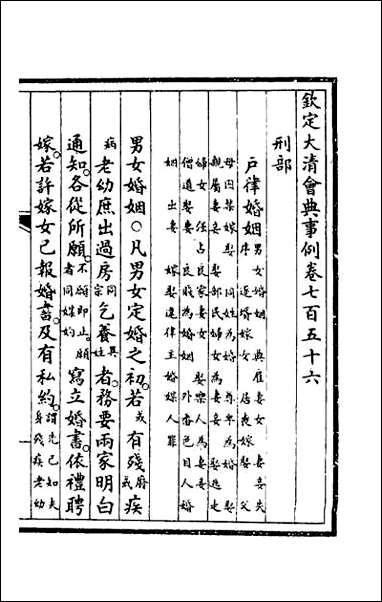 欽定大清會典事例卷七百五十六
刑部
户律婚姻男女婚姻 典雇妻女 妻妾失
序 逐壻嫁女 居喪嫁娶 父
母囚禁嫁娶 同姓為婚 尊卑為婚 娶
親屬妻妾 娶部民婦女為妻妾 娶逃走
婦女 強占良家妻女 娶樂人為妻妾
僧道娶妻 良賤為婚姻 外番色目人婚
姻 出妻 嫁娶違律主婚媒人罪
男女婚姻○凡男女定婚之初若或有殘廢或疾
病老幼庶出過房同宗乞養異姓者務要兩家明白
通知各從所願不願即止願者同媒妁寫立婚書依禮聘
嫁若許嫁女已報婚書及有私約謂先已知夫身殘疾老幼